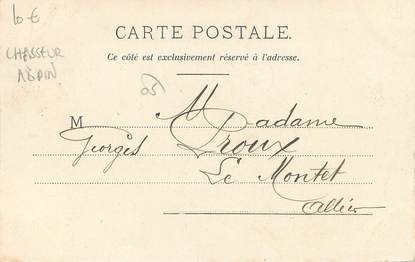 10 €
CHASSEUR
ALPIN
CARTE POSTALE.
Ce côté est exclusivement réservé à l'adresse.
05
M Madame
Georges Proux
Le Montet
Allier